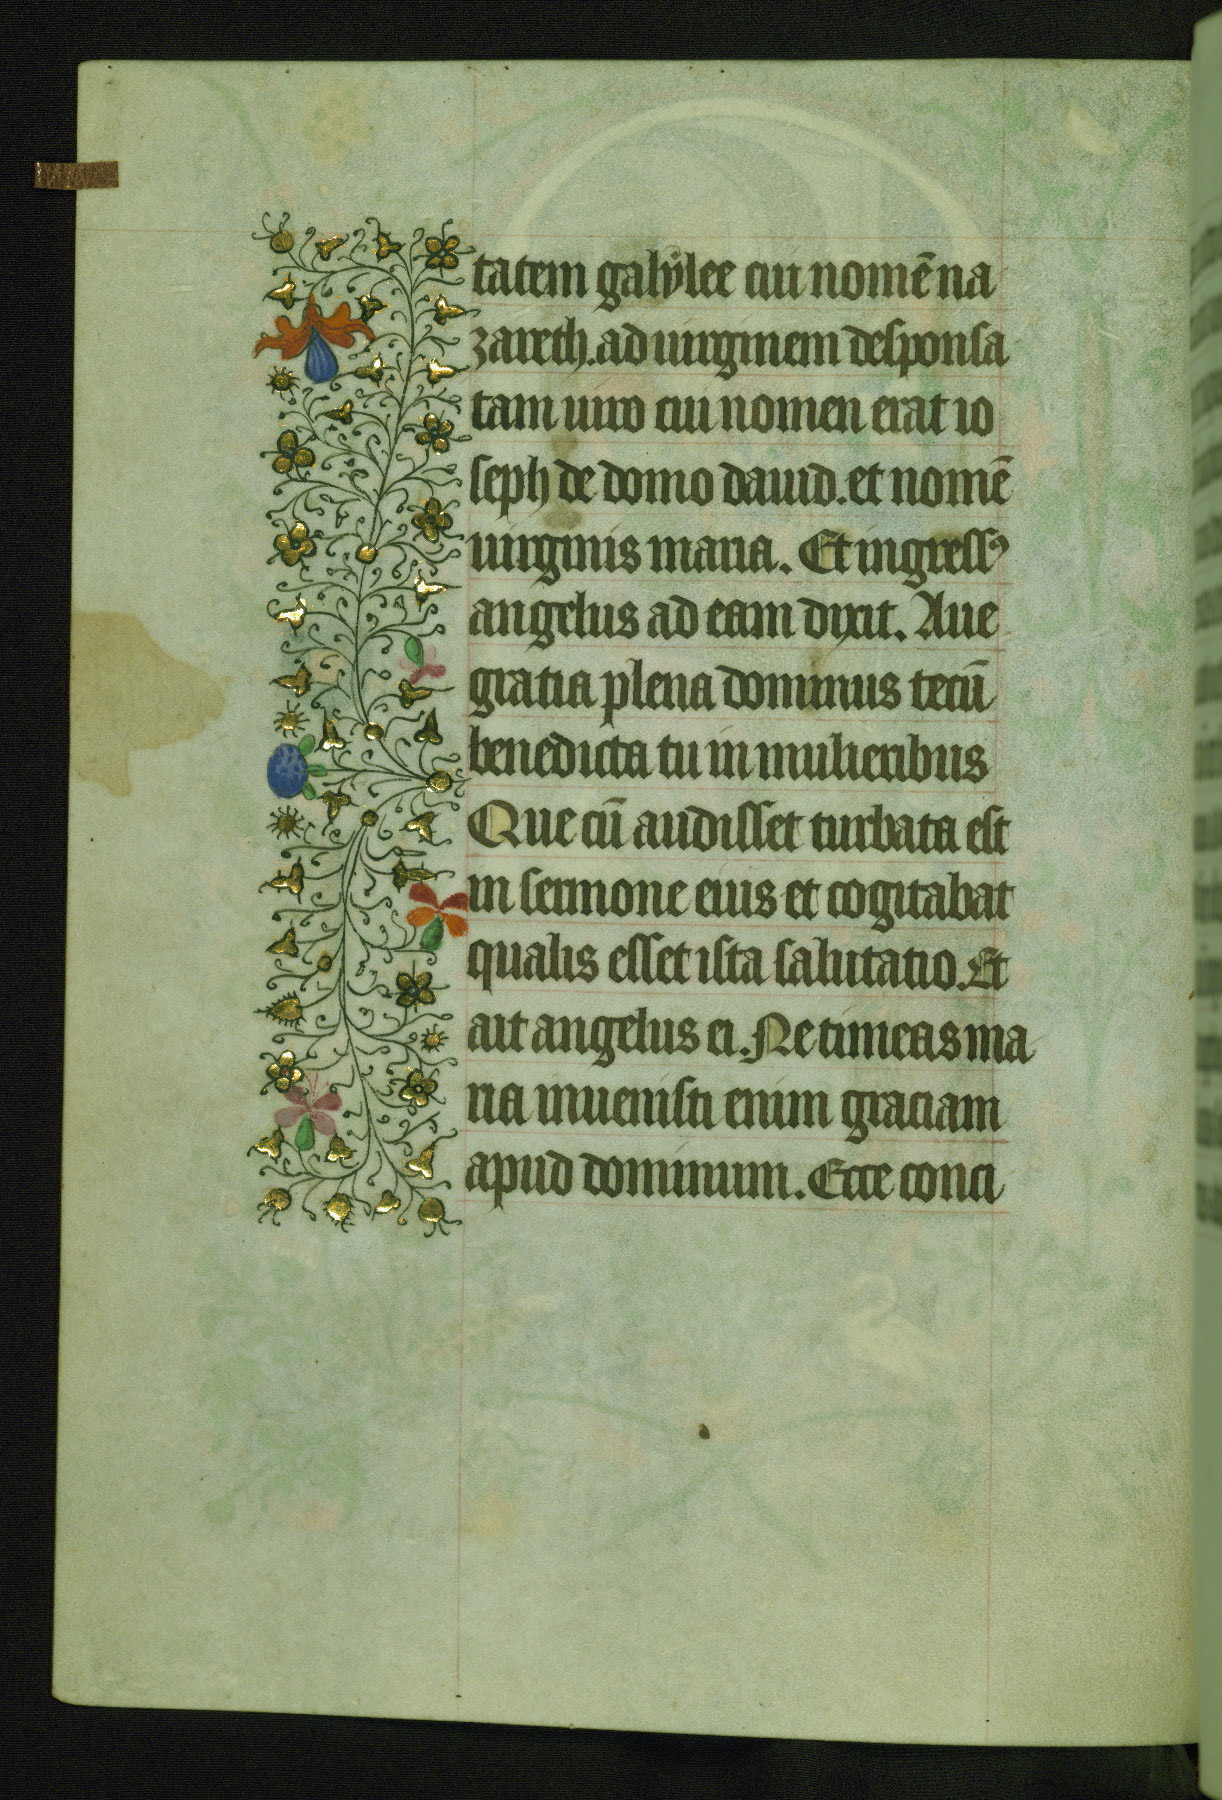 tatem galÿlee cui nomē na
zareth. ad uirginem desponsa
tam uiro cui nomen erat io
seph de domo dauid. et nomē
uirginis maria. Et ingressꝰ
angelus ad eam dixit. Aue
gratia plena dominus tecū
benedicta tu in mulieribus
Que cū audisset turbata est
in sermone eius et cogitabat
qualis esset ista salutatio. Et
ait angelus ei. Ne timeas ma
ria inuenisti enim graciam
apud dominum. Ecce conci